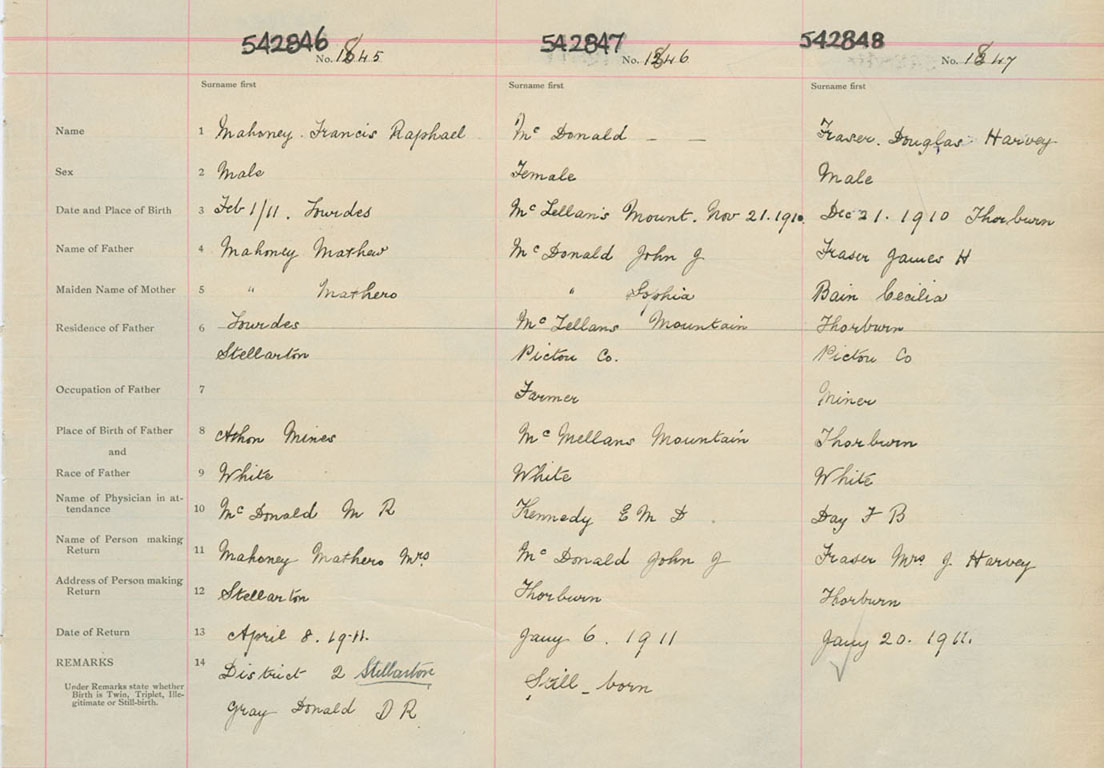 542846 542847 542848
No. 1845 No. 1846 No. 1847
Surname first Surname first Surname first
Name 1 Mahoney. Francis Raphael Mc Donald — — Fraser. Douglas Harvey
Sex 2 Male Female Male
Date and Place of Birth 3 Feb 1/11. Lourdes Mc Lellan's Mount. Nov 21. 1910. Dec 21. 1910 Thorburn
Name of Father 4 Mahoney Mathew Mc Donald John J Fraser James H
Maiden Name of Mother 5 " Mathero " Sophia Bain Cecilia
Residence of Father 6 Lourdes Mc Lellans Mountain Thorburn
Stellarton Pictou Co. Pictou Co
Occupation of Father 7 Farmer Miner
Place of Birth of Father 8 Mines Mc Mellans Mountain Thorburn
and
Race of Father 9 White White White
Name of Physician in at-
tendance 10 Mc Donald M R Kennedy E M D Day F B
Name of Person making
Return 11 Mahoney Mathero Mrs Mc Donald John J Fraser Mrs J Harvey
Address of Person making
Return 12 Stellarton Thorburn Thorburn
Date of Return 13 April 8. 1911. Jany 6. 1911 Jany 20. 1911.
REMARKS 14 District 2 Stellarton Still-born
Under Remarks state whether
Birth is Twin, Triplet, Ille-
gitimate or Still-birth.
Gray Donald D R